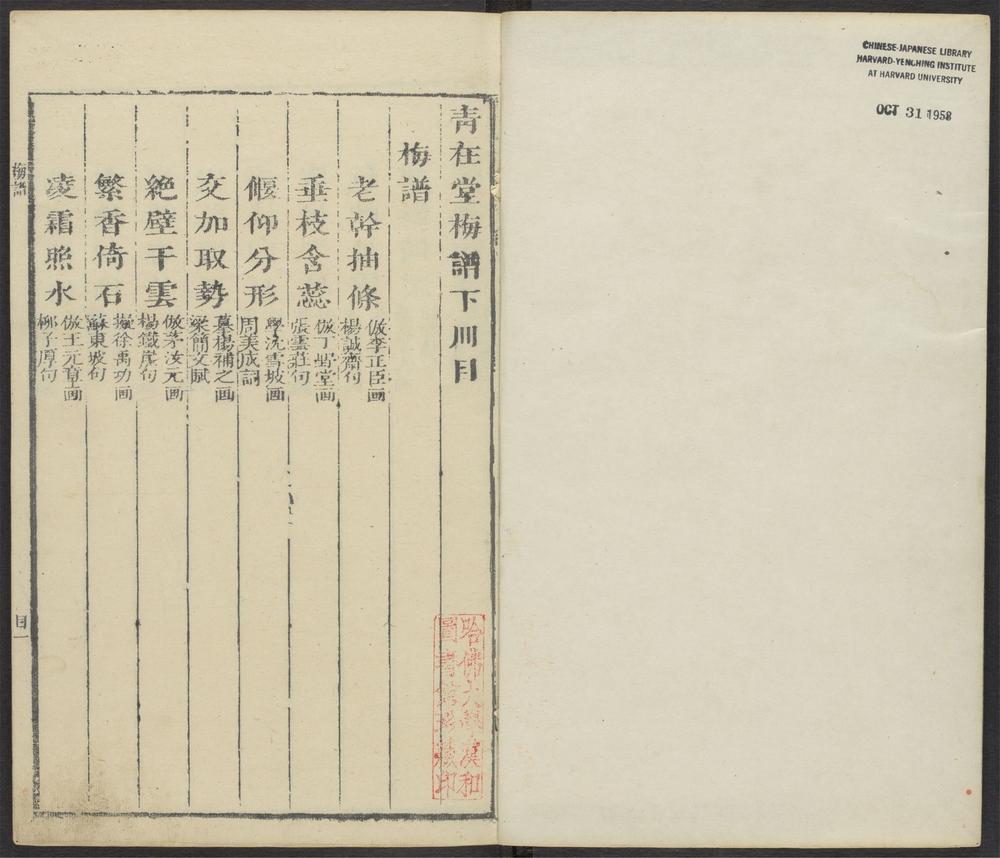 CHINESE-JAPANESE LIBRARY
HARVARD-YENCHING INSTITUTE
AT HARVARD UNIVERSITY
OCT 31 1958
青在堂梅譜下冊目
梅譜
老幹抽條
倣李正臣画
楊誠齋句
垂枝含蕊
倣丁野堂画
張雲莊句
偃仰分形
學沈雪坡画
周美成詞
交加取勢
摹楊補之画
梁簡文賦
絶壁干雲
倣茅汝元画
楊鐵崖句
繁香倚石
擬徐禹功画
蘇東坡句
凌霜照水
倣王元章画
柳子厚句
梅譜
目一
哈佛大學漢和
圖書館珍藏印